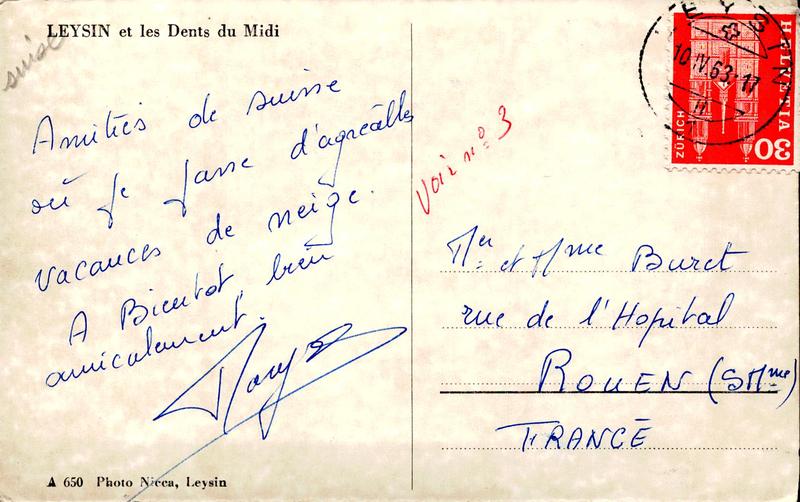 LEYSIN et les Dents du Midi
suisse
Amitiés de suisse
où je passe d'agréables
vacances de neige.
A Bientôt, bien
amicalement.
Voir n° 3
LEYSIN
10.IV.63.17
HELVETIA
ZÜRICH
30
Mr et Mme Buret
rue de l'Hopital
ROUEN (SMme)
FRANCE
A 650 Photo Nicca, Leysin